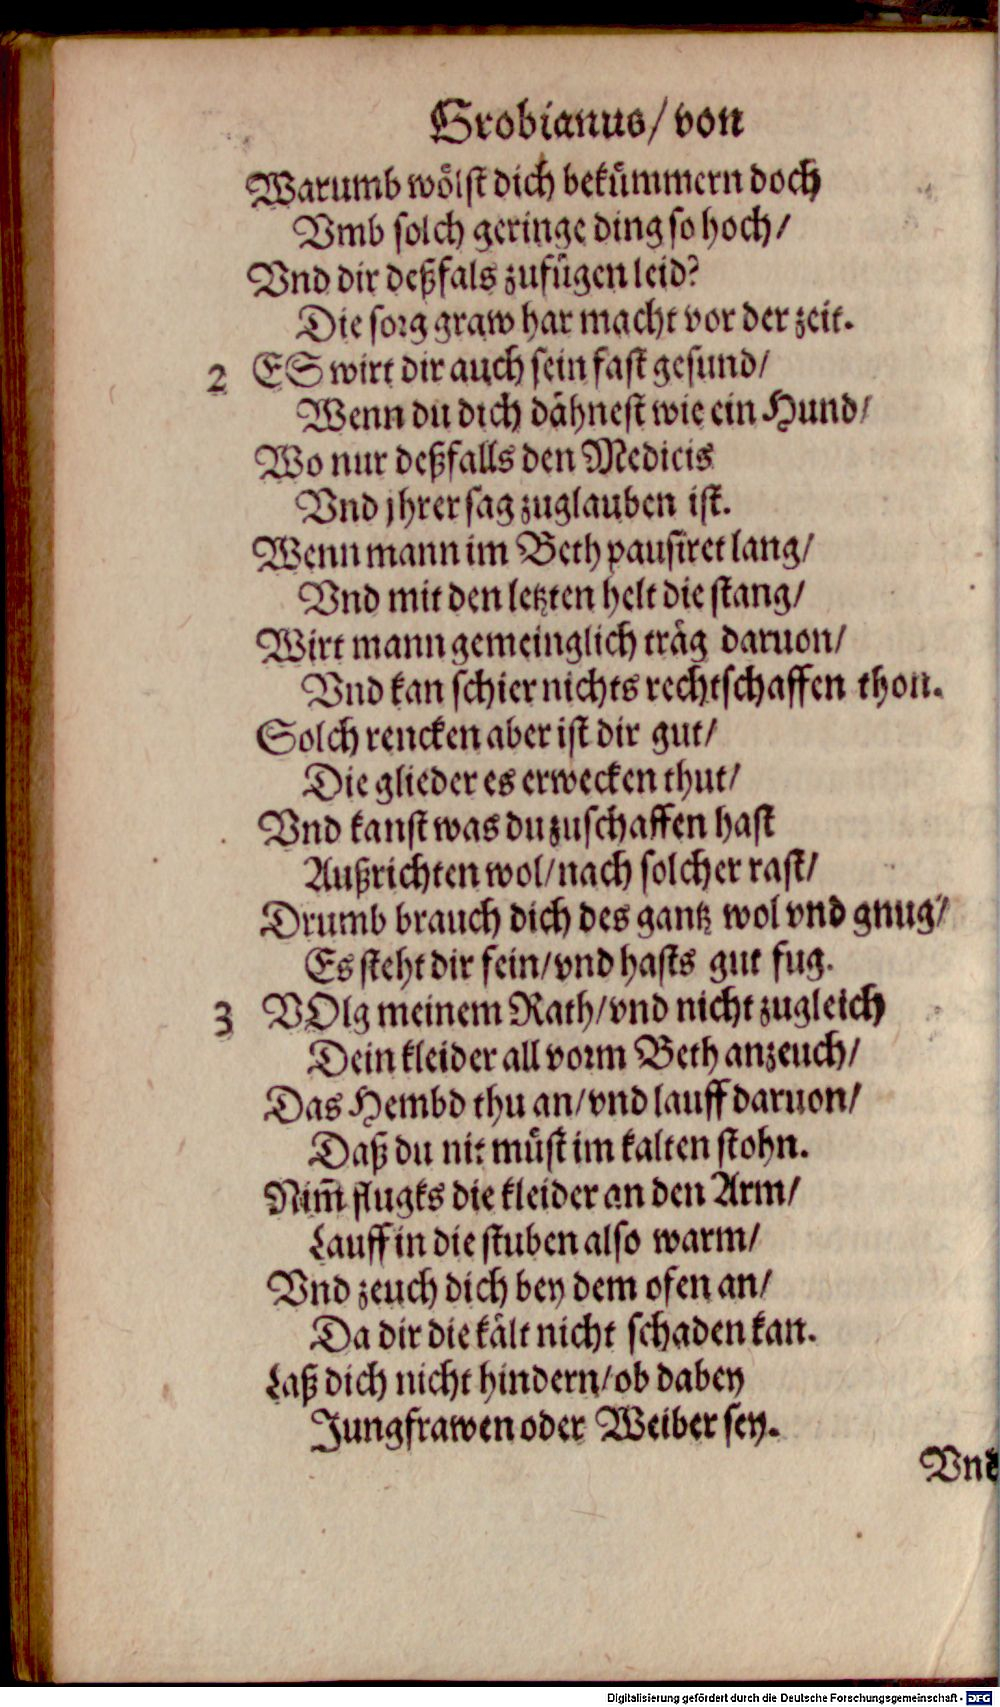 Grobianus/ von
Warumb wölst dich bekümmern doch
Vmb solch geringe ding so hoch/
Vnd dir deßfals zufügen leid?
Die sorg graw har macht vor der zeit.
2 ES wirt dir auch sein fast gesund/
Wenn du dich dähnest wie ein Hund/
Wo nur deßfalls den Medicis
Vnd jhrer sag zuglauben ist.
Wenn mann im Beth pausiret lang/
Vnd mit den letzten helt die stang/
Wirt mann gemeinglich träg daruon/
Vnd kan schier nichts rechtschaffen thon.
Solch rencken aber ist dir gut/
Die glieder es erwecken thut/
Vnd kanst was du zuschaffen hast
Außrichten wol/ nach solcher rast/
Drumb brauch dich des gantz wol vnd gnug/
Es steht dir fein/ vnd hasts gut fug.
3 VOlg meinem Rath/ vnd nicht zugleich
Dein kleider all vorm Beth anzeuch/
Das Hembd thu an/ vnd lauff daruon/
Daß du nit müst im kalten stohn.
Nim̃ flugks die kleider an den Arm/
Lauff in die stuben also warm/
Vnd zeuch dich bey dem ofen an/
Da dir die kält nicht schaden kan.
Laß dich nicht hindern/ ob dabey
Jungfrawen oder Weiber sey.
Vnd
Digitalisierung gefördert durch die Deutsche Forschungsgemeinschaft - DFG